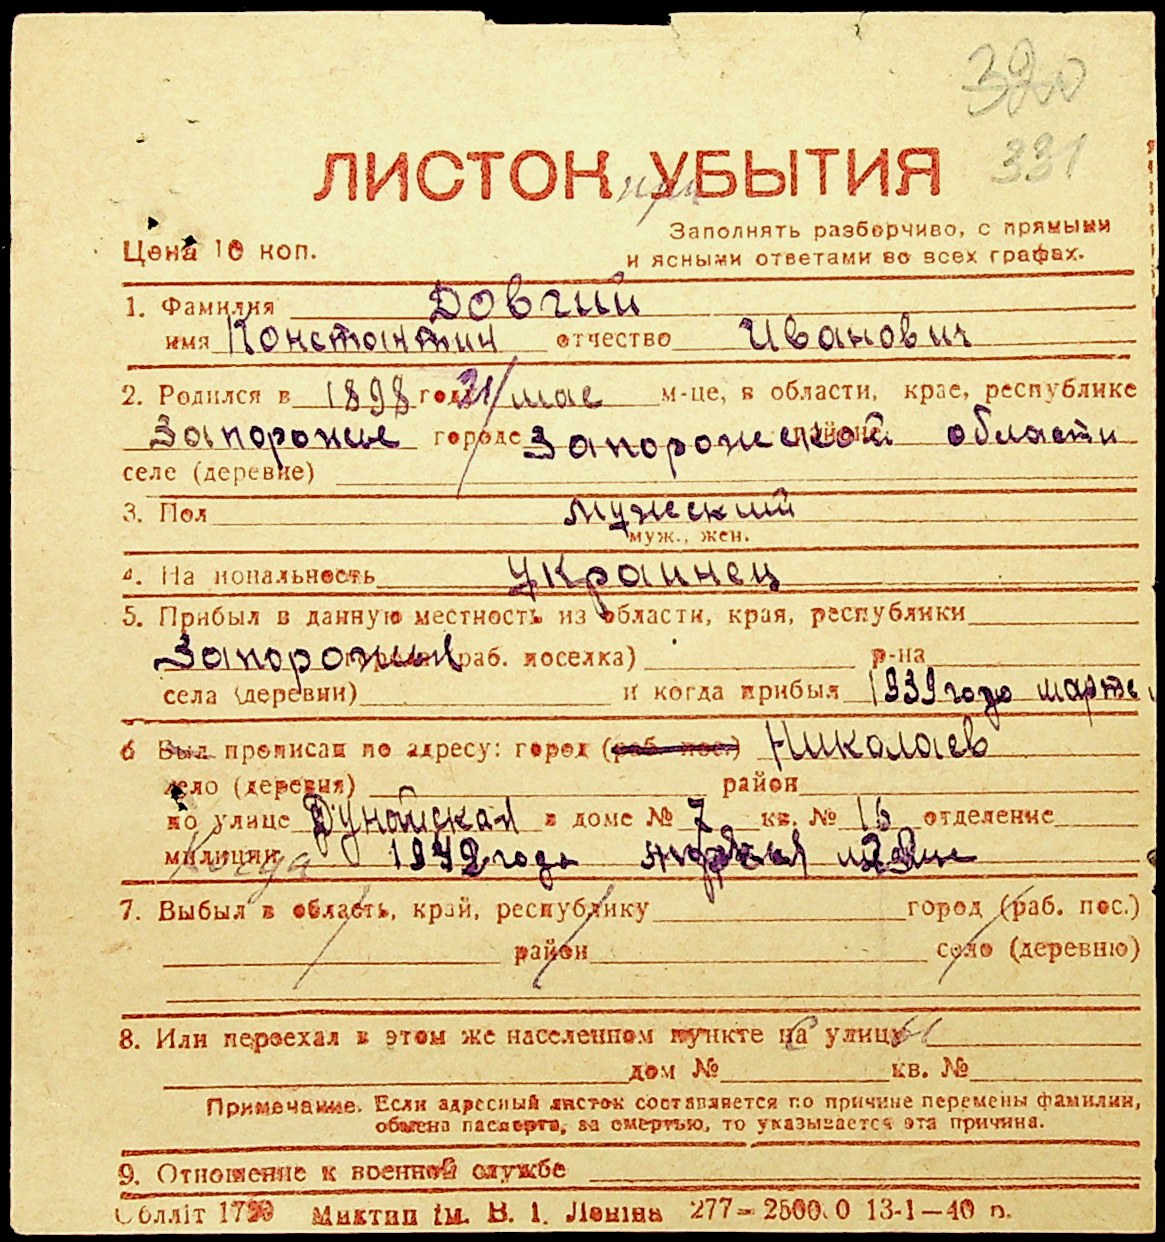 320
331
ЛИСТОК УБЫТИЯ
при
Заполнять разборчиво, с прямыми
Цена 10 коп.
и ясными ответами во всех графах.
1. Фамилия Довгий
имя Константин отчество Иванович
2. Родился в 1898 год 21/мае м-це, в области, крае, республике
Запорожье городе Запорожской области
селе (деревне)
3. Пол мужеский
муж., жен.
4. Национальность украинец
5. Прибыл в данную местность из области, края, республики
Запорожья раб. поселка) р-на
села (деревни) и когда прибыл 1939 года марте
6 Был прописан по адресу: город (раб. пос.) Николаев
село (деревня) район
по улице Дунайская в доме № 7 кв. № 16 отделение
милиции Когда 1942 года
7. Выбыл в область, край, республику город (раб. пос.)
район село (деревню)
8. Или переехал в этом же населенном пункте на с улицы
дом № кв. №
Примечание. Если адресный листок составляется по причине перемены фамилии,
обмена паспорта, за смертью, то указывается эта причина.
9. Отношение к военной службе
Обллiт Миктип iм. В. I. Ленiна 277—2500.0 13-1—40 п.